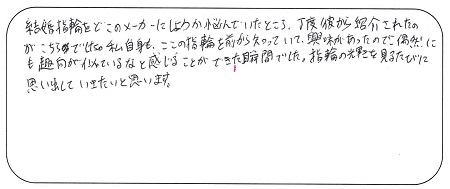 結婚指輪をどこのメーカーにしようか悩んでいたところ、丁度彼から紹介されたの
がこちらでした。私自身も、ここの指輪を前から知っていて、興味があったので、偶然にも
も趣向が似ているなと感じることができた瞬間でした。指輪の光輝を見るたびに
思い出していきたいと思います。